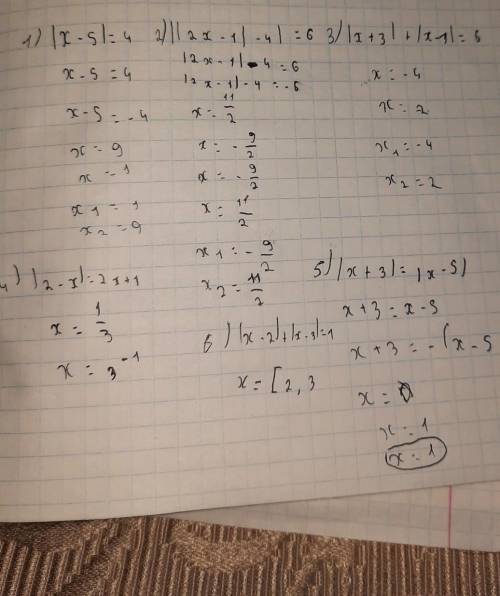 1) |x-5|=4
x-5=4
x-5=-4
x=9
x=1
x₁=1
x₂=9
2) ||2x-1|-4|=6
|2x-1|-4=6
|2x-1|-4=-6
x=11/2
x=-9/2
x=-9/2
x=11/2
x₁=-9/2
x₂=11/2
3) |x+3|+|x-1|=6
x=-4
x=2
x₁=-4
x₂=2
4) |2-x|=2x+1
x=1/3
x=3⁻¹
5) |x+3|=|x-5|
x+3=x-5
x+3=-(x-5
x=
x=1
x=1
6) |x-2|+|x-3|=1
x=[2,3